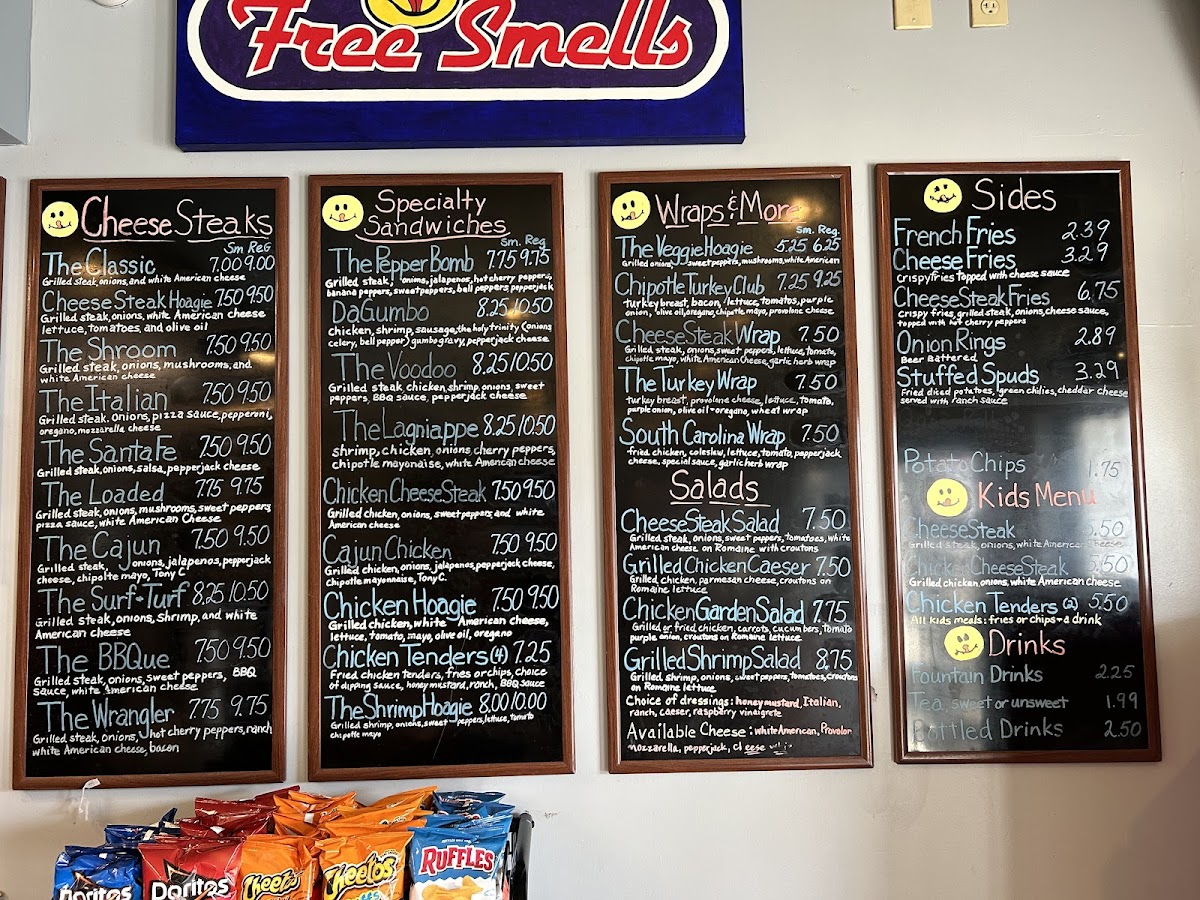 Free Smells
Cheese Steaks
Sm Reg
The Classic 7.00 9.00
Grilled steak, onions, and white American cheese
Cheese Steak Hoagie 7.50 9.50
Grilled steak, onions, white American cheese
lettuce, tomatoes, and olive oil
The Shroom 7.50 9.50
Grilled steak, onions, mushrooms, and
white American cheese
The Italian 7.50 9.50
Grilled steak, onions, pizza sauce, pepperoni,
oregano, mozzarella cheese
The Santa Fe 7.50 9.50
Grilled steak, onions, salsa, pepperjack cheese
The Loaded 7.75 9.75
Grilled steak, onions, mushrooms, sweet peppers
pizza sauce, white American Cheese
The Cajun 7.50 9.50
Grilled steak, onions, jalapenos, pepperjack
cheese, chipolte mayo, Tony C.
The Surf-Turf 8.25 10.50
Grilled steak, onions, shrimp, and white
American cheese
The BBQue 7.50 9.50
Grilled steak, onions, sweet peppers, BBQ
sauce, white American cheese
The Wrangler 7.75 9.75
Grilled steak, onions, hot cherry peppers, ranch
white American cheese, bacon
Specialty
Sandwiches
Sm. Reg.
The Pepper Bomb 7.75 9.75
Grilled steak, onions, jalapenos, hot cherry peppers,
banana peppers, sweet peppers, bell peppers, pepperjack
DaGumbo 8.25 10.50
chicken, shrimp, sausage, the holy trinity (onions
celery, bell pepper) gumbo gravy, pepperjack cheese
The Voodoo 8.25 10.50
Grilled steak, chicken, shrimp, onions, sweet
peppers, BBQ sauce, pepperjack cheese
The Lagniappe 8.25 10.50
shrimp, chicken, onions, cherry peppers,
chipotle mayonaise, white American cheese
Chicken Cheese Steak 7.50 9.50
Grilled chicken, onions, sweet peppers and white
American cheese
Cajun Chicken 7.50 9.50
Grilled chicken, onions, jalapenos, pepperjack cheese,
Chipotle mayonnaise, Tony C.
Chicken Hoagie 7.50 9.50
Grilled chicken, white American cheese,
lettuce, tomato, mayo, olive oil, oregano
Chicken Tenders (4) 7.25
Fried chicken tenders, fries or chips, choice
of dipping sauce, honey mustard, ranch, BBQ sauce
The Shrimp Hoagie 8.00 10.00
Grilled shrimp, onions, sweet peppers, lettuce, tomato
chipotle mayo
Wraps & More
Sm. Reg.
The Veggie Hoagie 5.25 6.25
Grilled onions, sweet peppers, mushrooms, white American
Chipotle Turkey Club 7.25 9.25
turkey breast, bacon, lettuce, tomatos, purple
onion, olive oil, oregano, chipotle mayo, provolone cheese
Cheese Steak Wrap 7.50
Grilled steak, onions, sweet peppers, lettuce, tomato,
chipotle mayo, white American Cheese, garlic herb wrap
The Turkey Wrap 7.50
turkey breast, provolone cheese, lettuce, tomato,
purple onion, olive oil + oregano, wheat wrap
South Carolina Wrap 7.50
fried chicken, coleslaw, lettuce, tomato, pepperjack
cheese, special sauce, garlic herb wrap
Salads
Cheese Steak Salad 7.50
Grilled steak, onions, sweet peppers, tomatoes, white
American cheese on Romaine with croutons
Grilled Chicken Caeser 7.50
Grilled chicken, parmesan cheese, croutons on
Romaine lettuce
Chicken Garden Salad 7.75
Grilled or fried chicken, carrots, cucumbers, Tomato
purple onion, croutons on Romaine lettuce
Grilled Shrimp Salad 8.75
Grilled shrimp, onions, sweet peppers, tomatoes, croutons
on Romaine lettuce
Choice of dressings: honey mustard, Italian,
ranch, caeser, raspberry vinaigrete
Available Cheese: white American, Provolon
mozzarella, pepperjack, cheese
Sides
French Fries 2.39
Cheese Fries 3.29
crispy fries topped with cheese sauce
Cheese Steak Fries 6.75
Crispy fries, grilled steak, onions, cheese sauce,
topped with hot cherry peppers
Onion Rings 2.89
Beer Battered
Stuffed Spuds 3.29
Fried diced potatoes, green chilies, cheddar cheese
served with ranch sauce
Potato Chips 1.75
Kids Menu
Cheese Steak 5.50
Grilled steak, onions, white American cheese
Chicken Cheese Steak 5.50
Grilled chicken, onions, white American cheese
Chicken Tenders (2) 5.50
All kids meals: fries or chips + a drink
Drinks
Fountain Drinks 2.25
Tea, sweet or unsweet 1.99
Bottled Drinks 2.50
Doritos
Doritos
Cheetos
Cheetos
RUFFLES